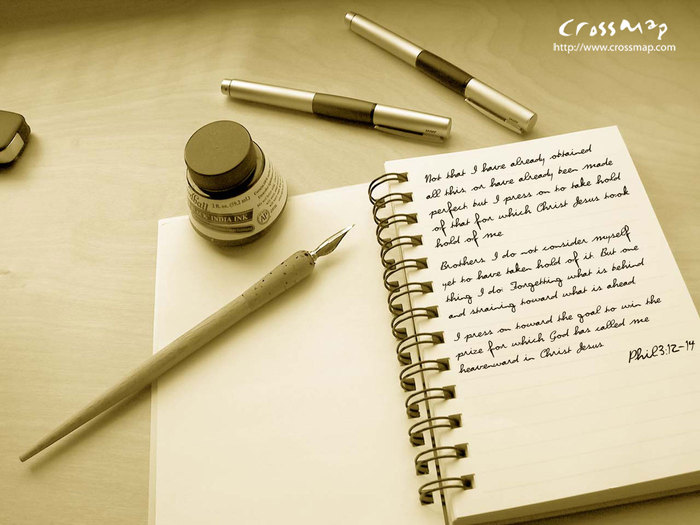 crossmap
http://www.crossmap.com
1 fl. oz. (29.2 mL)
INDIA INK
Not that I have already obtained
all this, or have already been made
perfect but I press on to take hold
of that for which Christ Jesus took
hold of me
Brothers. I do not consider myself
yet to have taken hold of it. But one
thing I do: Forgetting what is behind
and straining toward what is ahead
I press on toward the goal to win the
prize for which God has called me
heavenward in Christ Jesus
Phil3:12-14